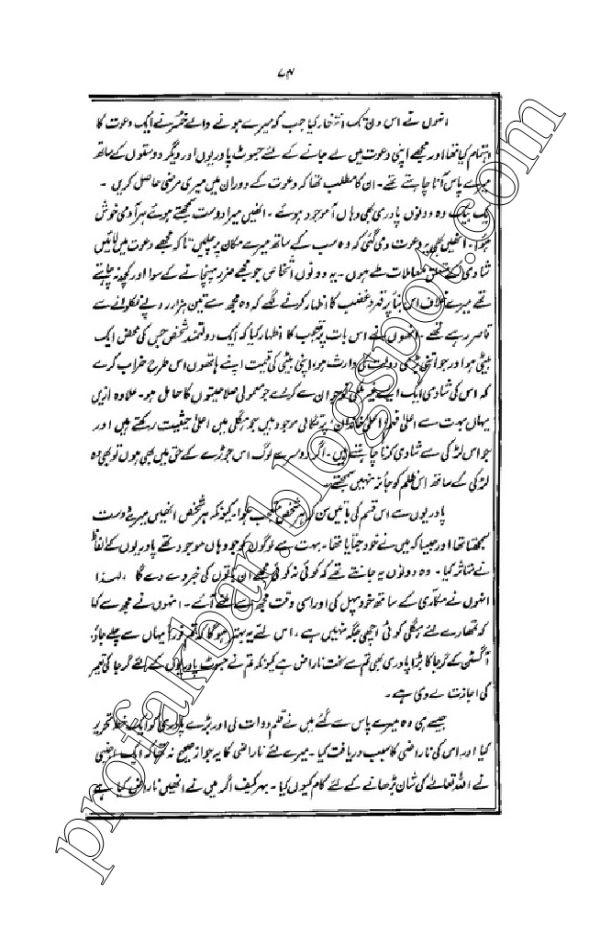 ۷۴
انہوں نے اس دن تک انتظار کیا جب کہ میرے ہونے والے خسر نے ایک دعوت کا
اہتمام کیا تھا اور مجھے اپنی دعوت میں لے جانے کے لئے جیسوٹ پادریوں اور دیگر دوستوں کے ساتھ
میرے پاس آنا چاہتے تھے۔ ان کا مطلب تھا کہ دعوت کے دوران میں میری مرضی حاصل کریں۔
یک بیک وہ دونوں پادری بھی وہاں آموجود ہوئے۔ انھیں میرا دوست سمجھتے ہوئے ہر آدمی خوش
ہوا۔ انھیں بھی دعوت دی گئی کہ وہ سب کے ساتھ میرے مکان پر چلیں تاکہ مجھے دعوت میں لائیں
شادی کے متعلق معاملات طے ہوں۔ یہ دونوں اشخاص جو مجھے ضرر پہنچانے کے سوا اور کچھ نہ چاہتے
تھے میرے خلاف اس بنا پر غضب کا اظہار کرنے لگے کہ وہ مجھ سے تین ہزار روپے نکلوانے سے
قاصر رہے تھے۔ انھوں نے اس بات پر تعجب کا اظہار کیا کہ ایک دولتمند شخص جس کی محض ایک
بیٹی ہو اور جو اتنی بڑی دولت کی وارث ہو، اپنی بیٹی کی قسمت اپنے ہاتھوں اس طرح خراب کرے
کہ اس کی شادی ایک ایسے غیر ملکی نوجوان سے کردے جو معمولی صلاحیتوں کا حامل ہو۔ علاوہ ازیں
یہاں بہت سے اعلیٰ خاندان پرتگالی موجود ہیں جو مغل میں اعلیٰ حیثیت رکھتے ہیں اور
جو اس لڑکی سے شادی کرنا چاہتے ہیں۔ اگر دوسرے لوگ اس جوڑے کے حق میں بھی ہوں تو بھی وہ
لڑکی کے ساتھ اس ظلم کو جائز نہیں سمجھتے۔
پادریوں سے اس قسم کی باتیں سن کر ہر شخص متعجب ہوا۔ کیونکہ ہر شخص انھیں میرے دوست
سمجھتا تھا اور جیسا کہ میں نے خود جتایا تھا۔ بہت سے لوگوں کو جو وہاں موجود تھے پادریوں کے الفاظ
نے متاثر کیا۔ وہ دونوں یہ جانتے تھے کہ کوئی نہ کوئی مجھے ان باتوں کی خبر دے دے گا، لہذا
انہوں نے مکاری کے ساتھ خود پہل کی اور اسی وقت مجھ سے ملنے آئے۔ انہوں نے مجھ سے کہا
کہ تمھارے لئے ہگلی کوئی اچھی جگہ نہیں ہے، اس لئے یہ بہتر ہوگا کہ تم فوراً یہاں سے چلے جاؤ۔
آگسٹی کے گرجا کا بڑا پادری بھی تم سے سخت ناراض ہے کیونکہ تم نے جیسوٹ پادریوں کے لئے گرجا کی تعمیر
کی اجازت لے دی ہے۔
جیسے ہی وہ میرے پاس سے گئے میں نے قلم دوات لی اور بڑے پادری کو ایک خط تحریر
کیا اور اس کی ناراضی کا سبب دریافت کیا۔ میرے لئے ناراضی کا یہ جواز صحیح نہ تھا کہ ایک
نے اللہ تعالےٰ کی شان بڑھانے کے لئے کام کیوں کیا۔ بہر کیف اگر میں نے انھیں ناراض کیا ہے
profakbar.blogspot.com